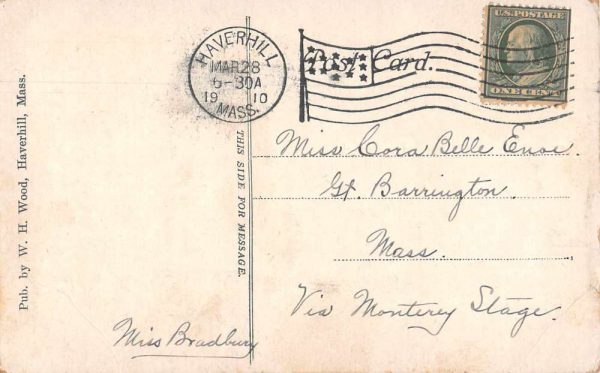 Pub. by W. H. Wood, Haverhill, Mass.
HAVERHILL
MAR 28
6-30A
19 10
MASS.
Post Card.
U.S. POSTAGE
ONE CENT
THIS SIDE FOR MESSAGE.
Miss Cora Belle Enoe.
Gt. Barrington.
Mass.
Via Monterey Stage.
Miss Bradbury